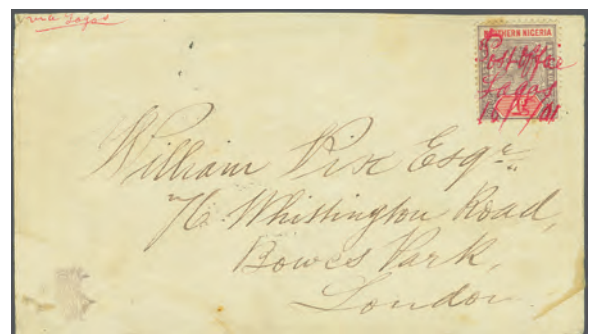 via Lagos
NORTHERN NIGERIA
Post Office
Lagos
William Esqr.
76 Whittington Road,
Bowes Park,
London